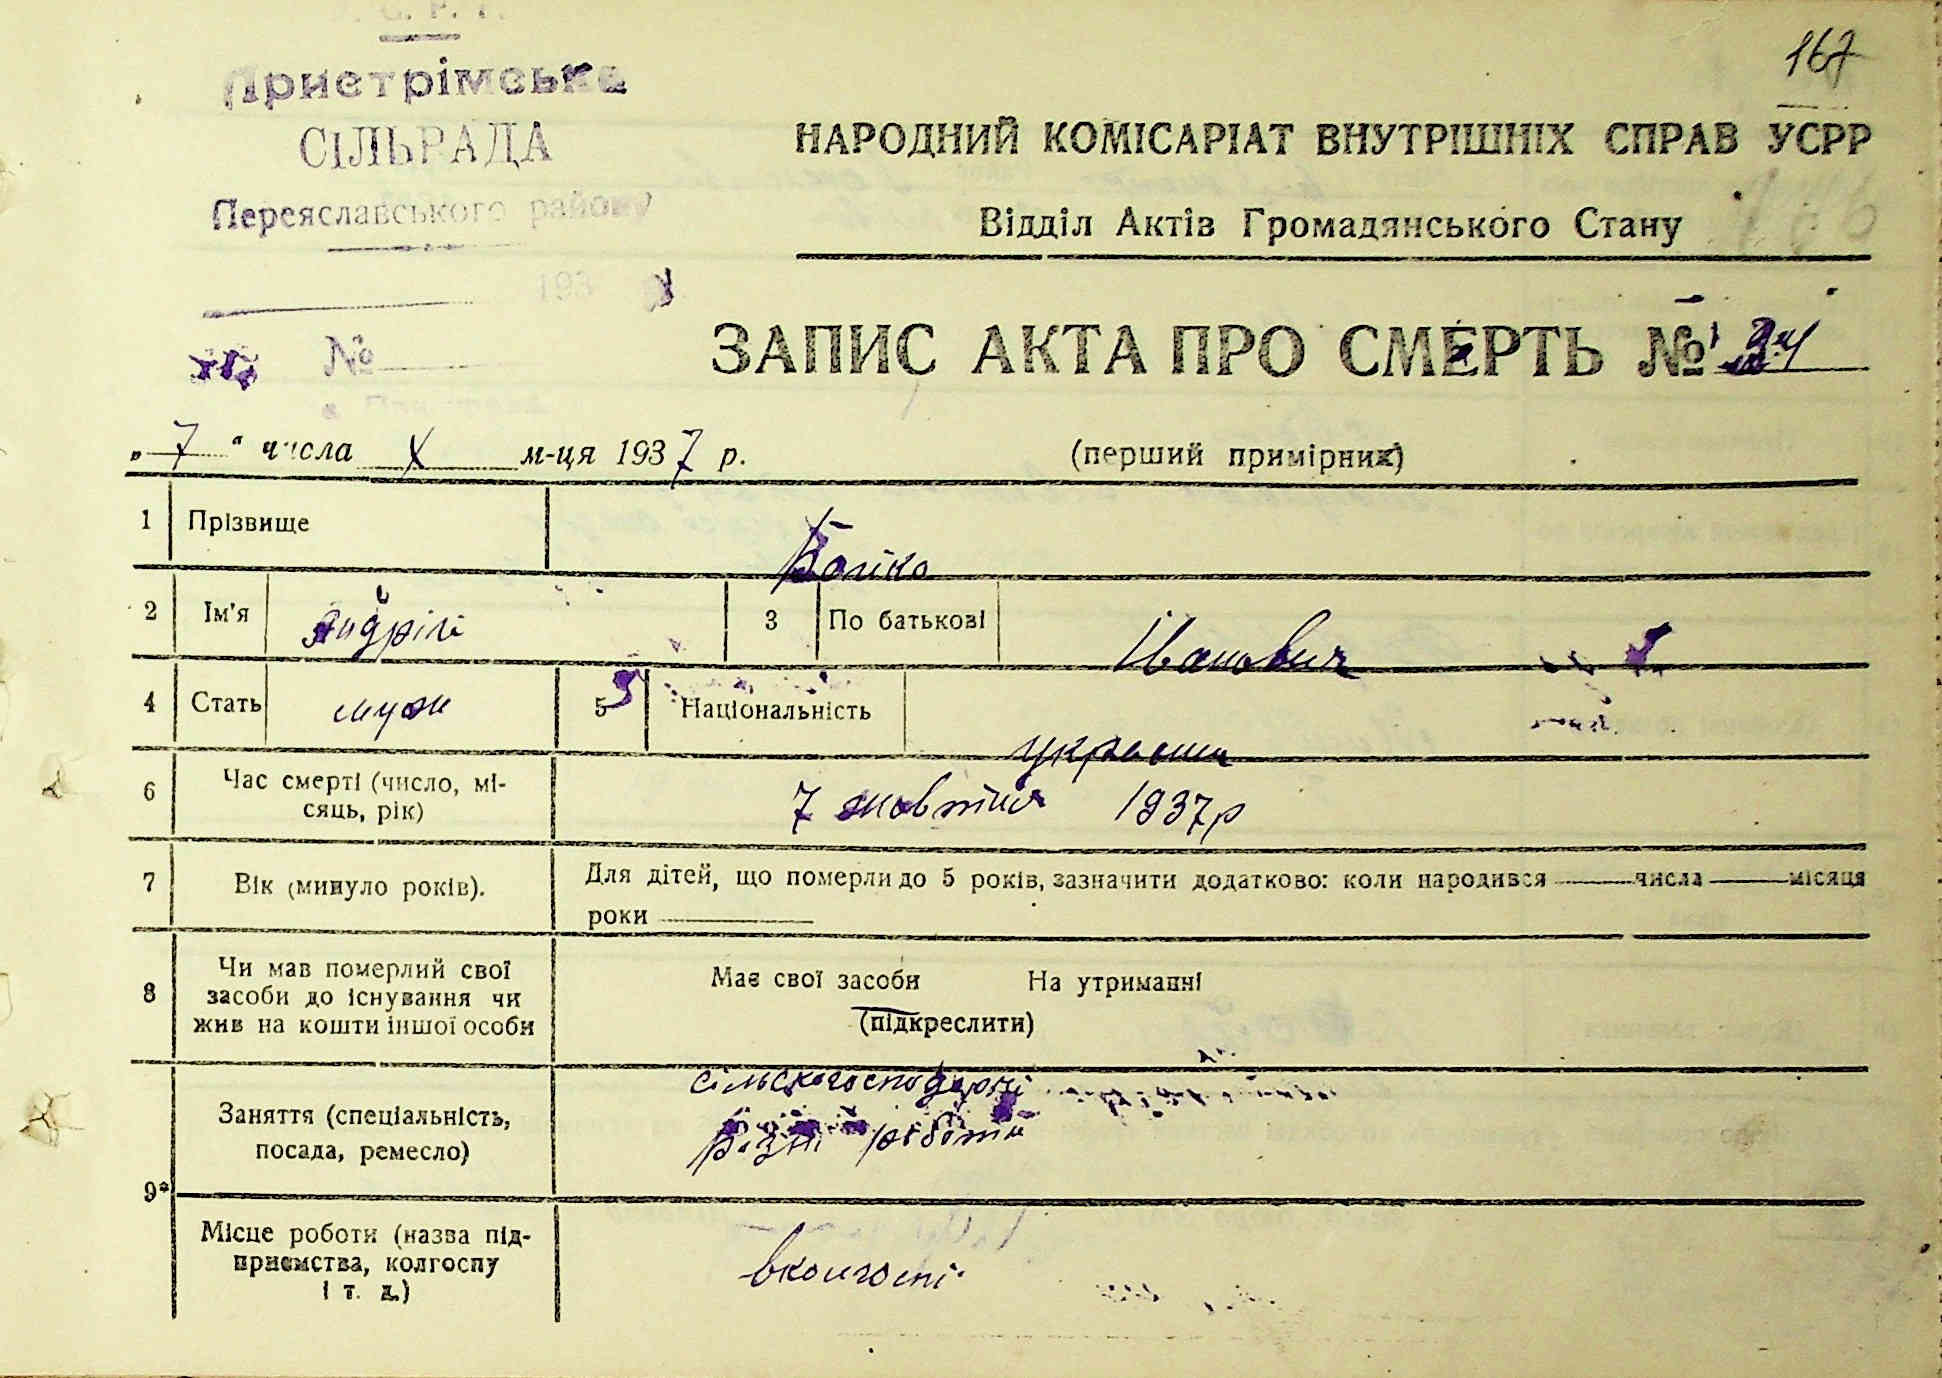 У. С. Р. Р.
167
Пристрімська
СІЛЬРАДА
Переяславського району
НАРОДНИЙ КОМІСАРІАТ ВНУТРІШНІХ СПРАВ УСРР
Відділ Актів Громадянського Стану
193
№
ЗАПИС АКТА ПРО СМЕРТЬ №
„7“ числа X м-ця 1937 р.
(перший примірник)
1 Прізвище Бойко
2 Ім'я Андрій 3 По батькові Іванович
4 Стать муж 5 Національність
6 Час смерті (число, мі-
сяць, рік) 7 жовтня 1937 р
7 Вік (минуло років). Для дітей, що померли до 5 років, зазначити додатково: коли народився числа місяця
роки
8 Чи мав померлий свої
засоби до існування чи
жив на кошти іншої особи
Має свої засоби На утриманні
(підкреслити)
9* Заняття (спеціальність,
посада, ремесло)
сільскогосподарчі
різні роботи
Місце роботи (назва під-
приємства, колгоспу
і т. д.)
вколгоспі